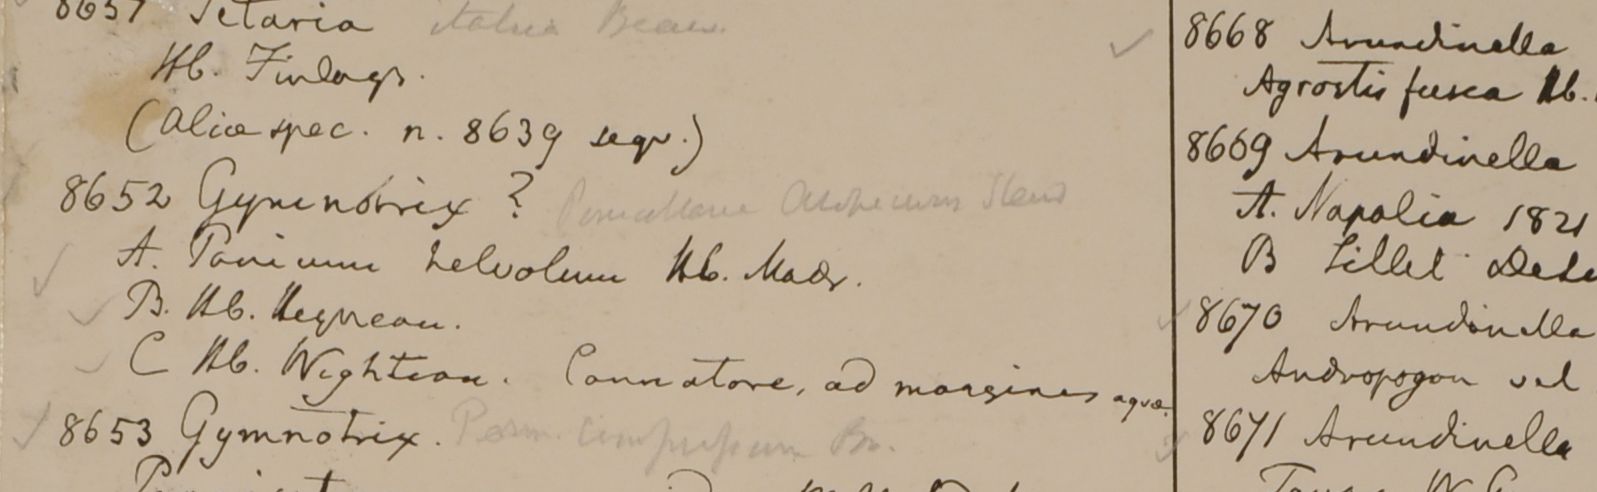 8651 Setaria italica Beauv.
Hb. Finlays.
(Aliae spec. n. 8639 seqv.)
8652 Gymnotrix ?
A. Panicum helvolum Hb. Madr.
B. Hb. Heyneau.
C Hb. Wightian. Connatore, ad margines aqvæ.
8653 Gymnotrix.
8668 Arundinella
Agrostis fusca Hb.
8669 Arundinella
A. Napalia 1821
B Sillet
8670 Arundinella
Andropogon vel
8671 Arundinella